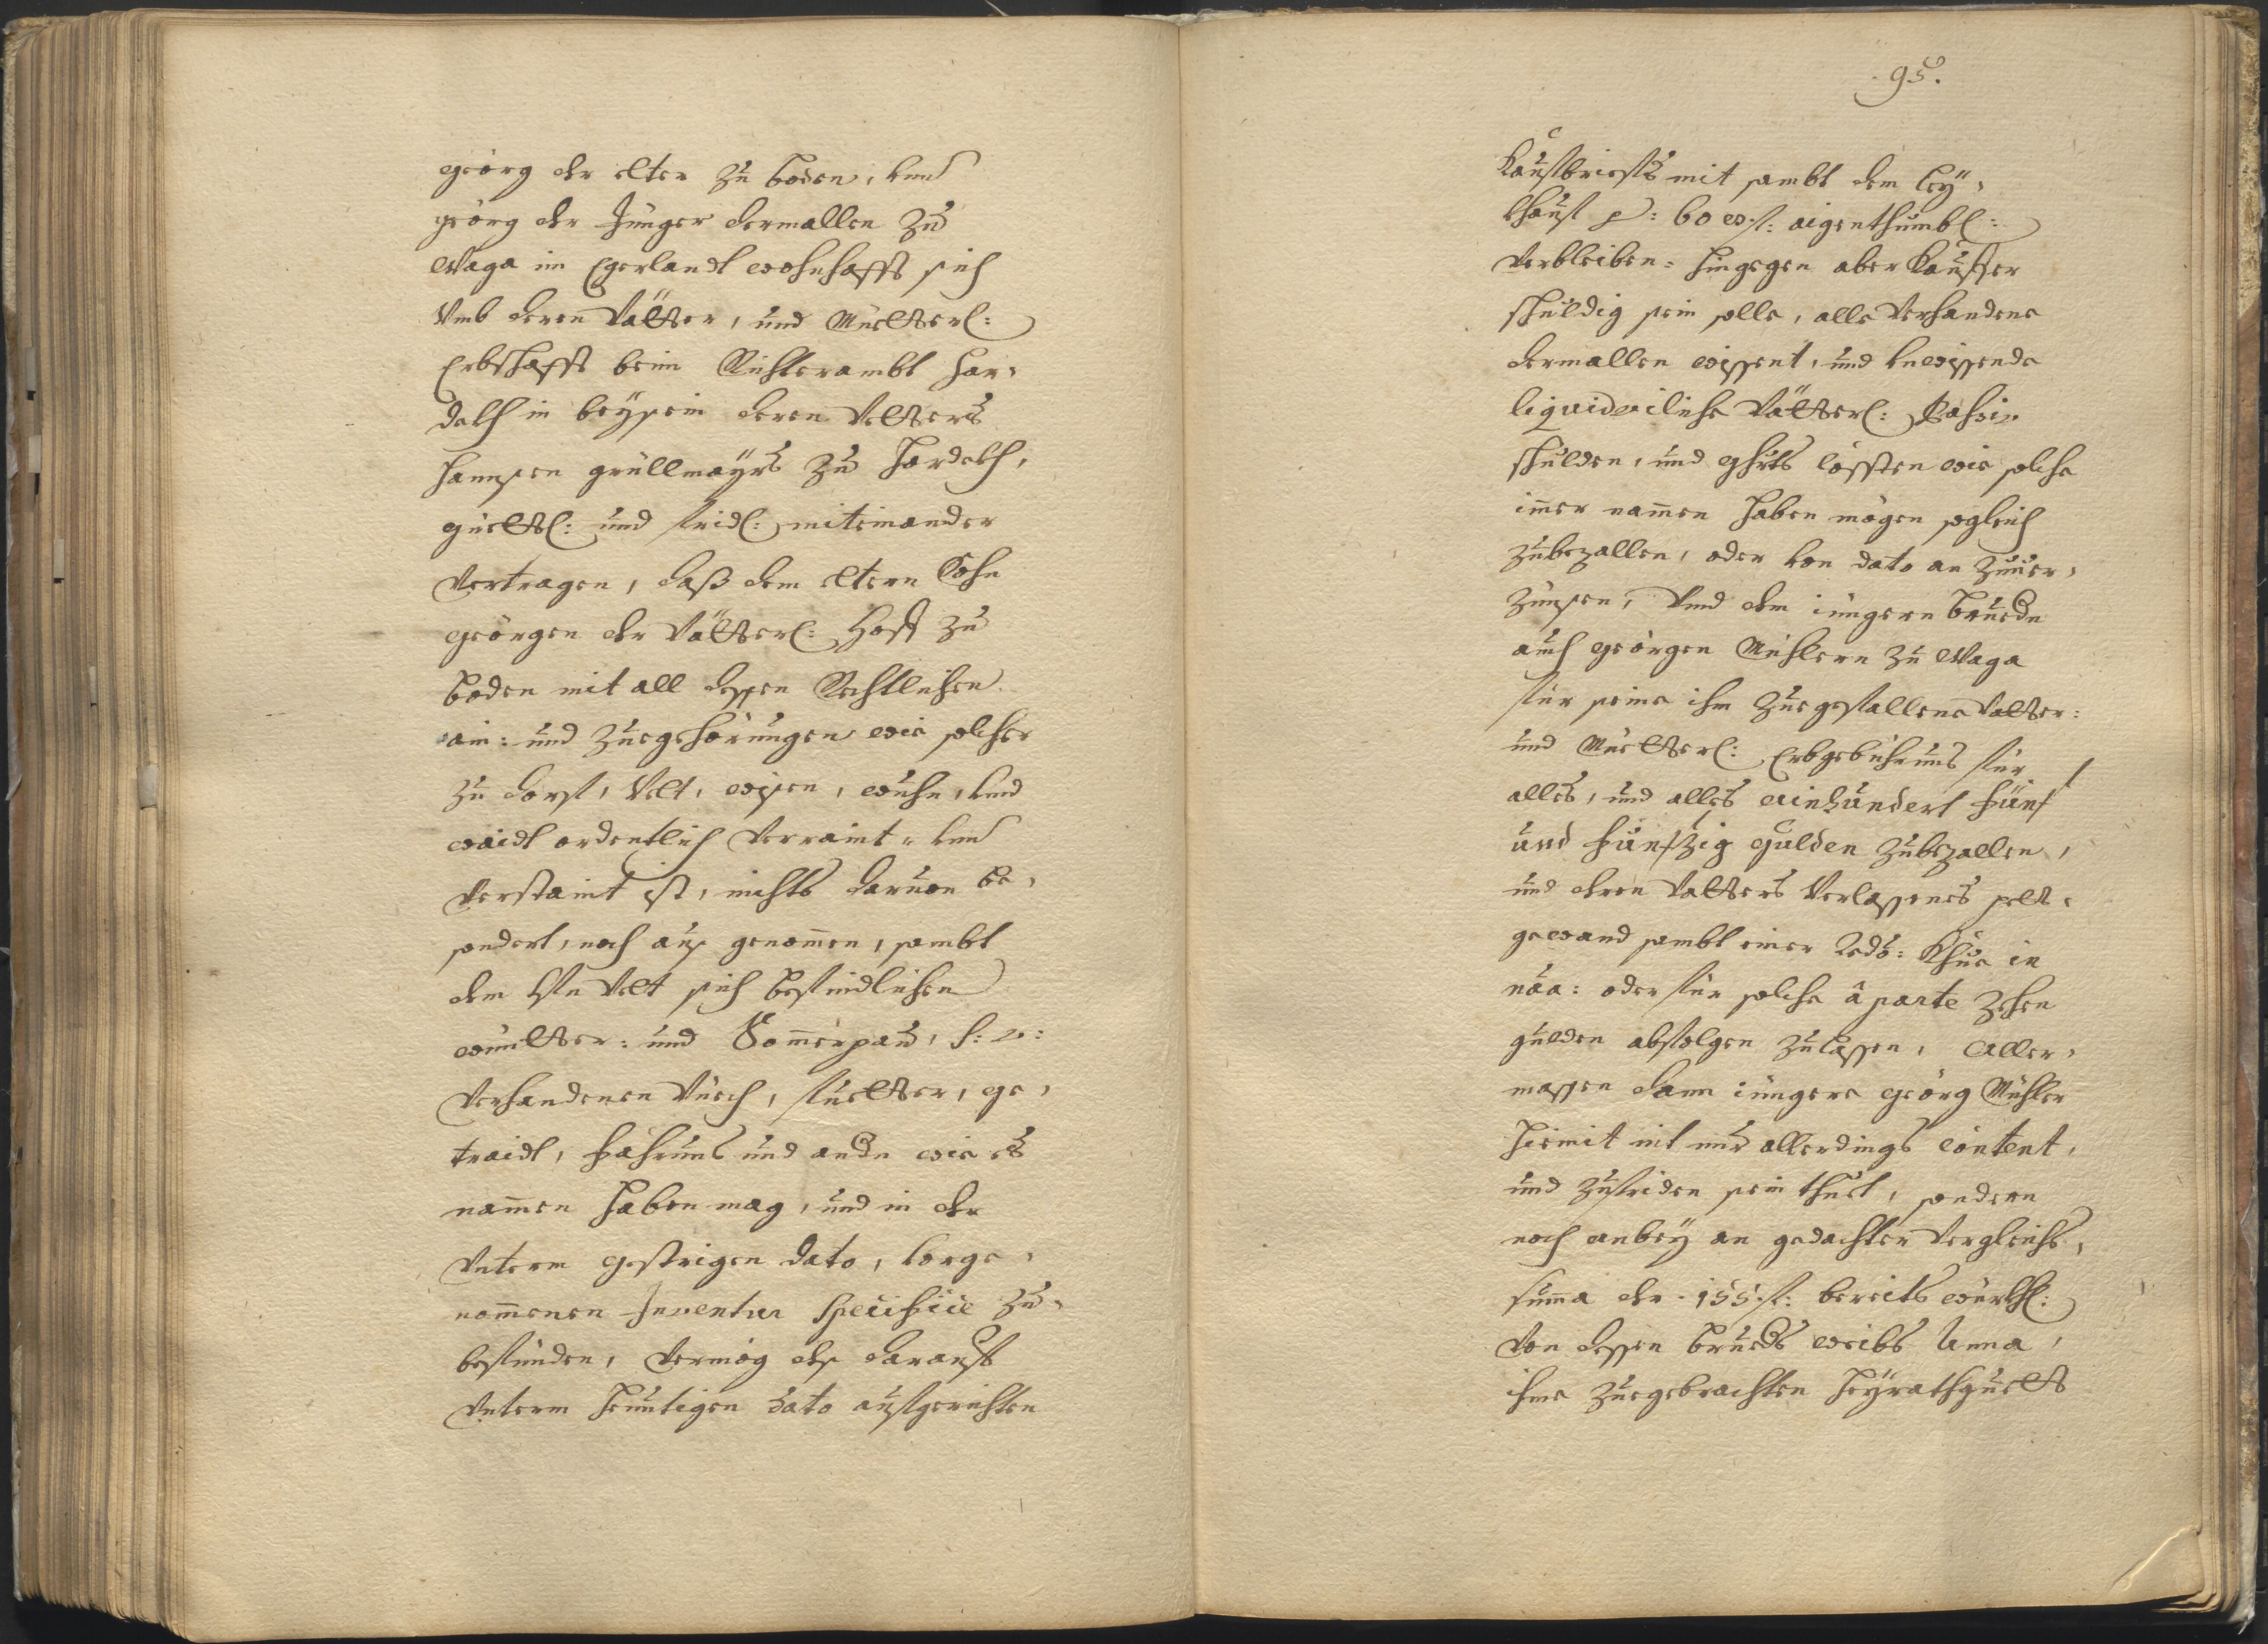 Geörg der elter zu Boden, vnd
Geörg der Jünger dermallen zu
Waga im Egerlandt wohnhafft sich
Vmb deren Vätter, und Muetterl:
Erbschafft beim Richterambt Har,
dekh in beysein deren Vetters
Hannsen Grüllmayrs zu Hardekh,
güettl: und fridl: miteinander
Vertragen, daß dem eltern Sohn
Geörgen der Vätterl: Hoff zu
Boden mit all dessen Rechtlichen
ain: und Zuegehörungen wie solcher
zu dorf, Velt, wisen, wuhn, vnd
waidt ordentlich Verraint = vnd
Verstaint ist, nichts daruon be,
sondert, noch auß genom̅en, sambt
dem Velt sich befindlichen
wintter: und Som̅erpau, s: v:
Verhandenen Viech, fuetter, ge,
traidt, Fahrnus und andr wie es
nam̅en haben mag, und in der
Vnterm gestrigen dato, vorge,
nom̅enen Inventur Specificè zu,
befünden, Vermög deß darauf
Vnterm heuntigen dato aufgerichten
95.
Kaufbriefs mit sambt dem Ley,
khauf p: 60 w. f: aigenthumbl:
Verbleiben = hingegen aber Kauffer
schuldig sein solle, alle Verhandene
dermallen wissent, und vnwissende
liquidierliche Vätterl: Passiv
schulden, und Ghrts cössten wie solche
im̅er nam̅en haben mögen sogleich
zubezallen, oder von dato an zuuer,
zünsen, Vnd dem jüngern Bruedr
auch Geörgen Mühlern zu Waga
für seine ihm zuegefallene Vatter:
und Muetterl: Erbgebührnus für
alles, und alles Ainhundert Fünf
und Fünfzig Gulden zubezallen,
und deren Vatters Verlassenes
gewand sambt einer Redo: Khue in
oder für solche à parte zehen
gulden abfolgen zulassen, Aller,
massen dann jüngere Geörg Mühler
hiemit nit nur allerdings content,
und zufriden sein thuet, sondern
noch anbey an gedachter Vergleichs,
sum̅a der 155. f: bereits würkhl:
Von dessen Brueders weibs Anna,
ihme zuegebrachten Heyrathguett